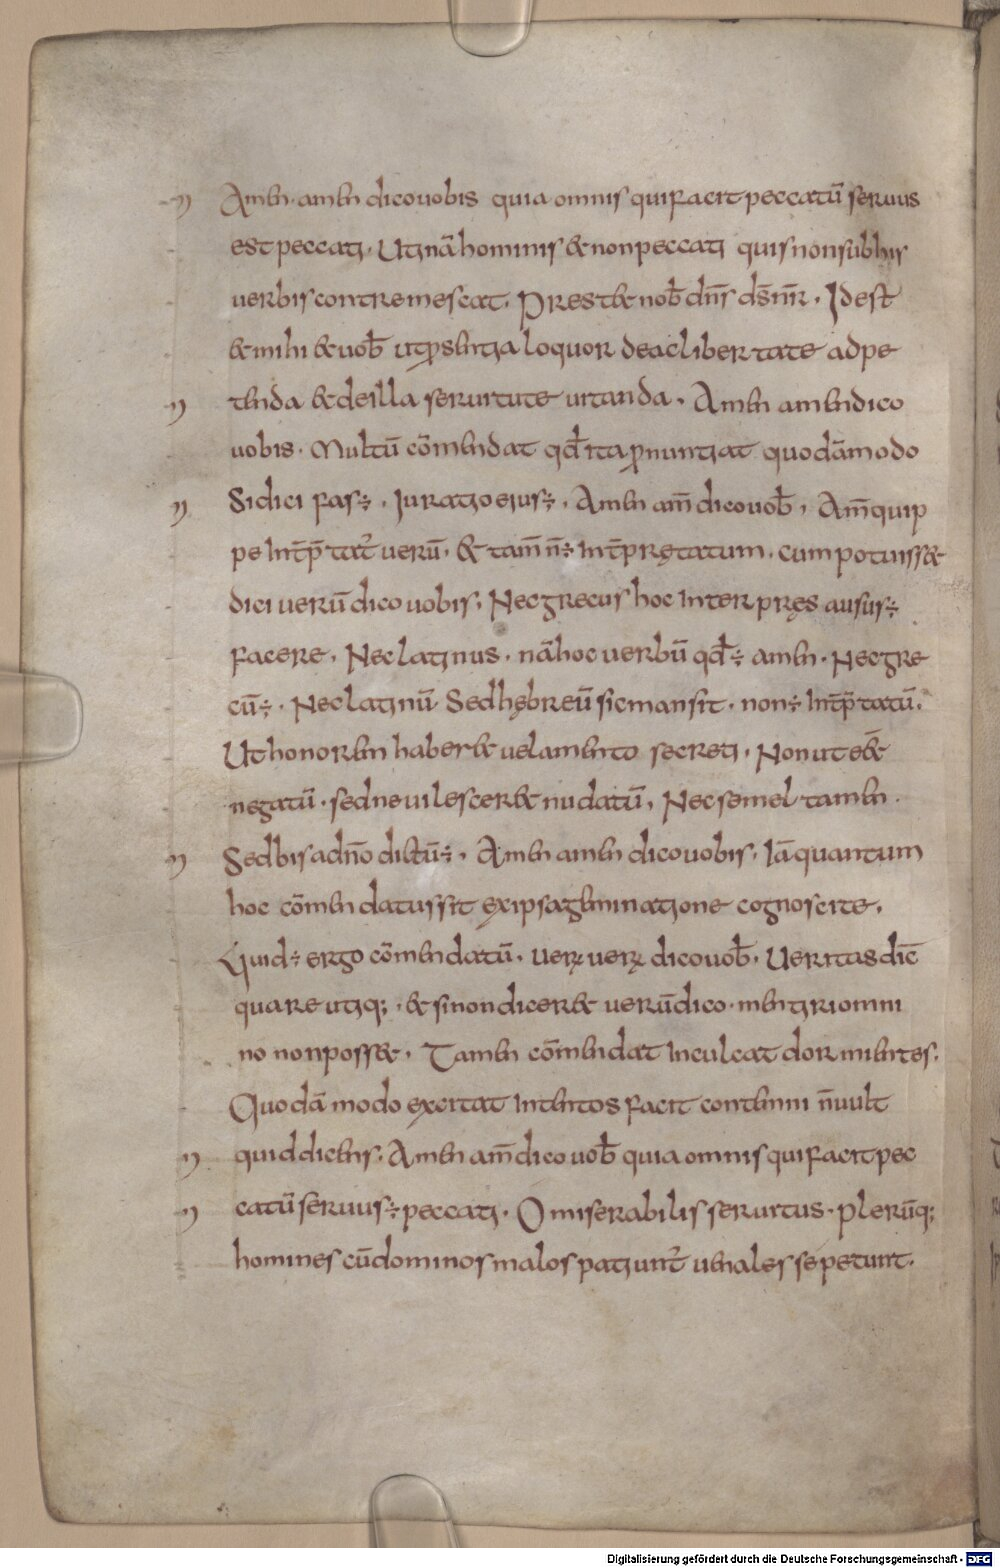 Amen· amen dico uobis quia omnis qui facit peccatū seruus
est peccati· Uti nā hominis & non peccati quis non sub his
uerbis contremescat· Prest& nob̄ dn̄s ds̄ nr̄· Id est
& mihi & uob̄ ut p̄sentia loquor de ac libertate adpe
tenda & de illa seruitute uitanda· Amen amen dico
uobis· Multū cōmendat qd̄ ita ꝓnuntiat quodāmodo
Si dici fas÷· Iuratio eius÷· Amen am̄ dico uob̄· Am̄ quip
pe int̄p̄tat̄ uerū· & tam̄ n̄÷ int̄prętatum· cum potuiss&
dici uerū dico uobis· Nec grecus hoc interpręs ausus÷
facere· Nec latinus· nā hoc uerbū qd̄÷ amen· Nec gre
cū÷· Nec latinū Sed hębreū sic mansit· non÷ int̄p̄tatū·
Ut honorem haber& uelamento secreti· Non ut e&̄
negatū· sed ne uilescer& nudatū· Nec semel tamen·
Sed bis a dn̄o dictū÷· Amen amen dico uobis· Iā quantum
hoc cōmendatus sit ex ipsa geminatione cognoscite·
Quid÷ ergo cōmendatū· uerę uerę dico uob̄· Ueritas dic̄
quare utiq;· & si non dicer& uerū dico· mentiri omni
no non poss&· Tamen cōmendat inculcat dormientes·
Quodā modo excitat intentos facit contemni n̄ uult
quid dicens· Amen am̄ dico uob̄ quia omnis qui facit pec
catū seruus÷ peccati· O miserabilis seruitus· plerūq;
homines cū dominos malos patiunt̄ uenales se petunt·
Digitalisierung gefördert durch die Deutsche Forschungsgemeinschaft - DFG